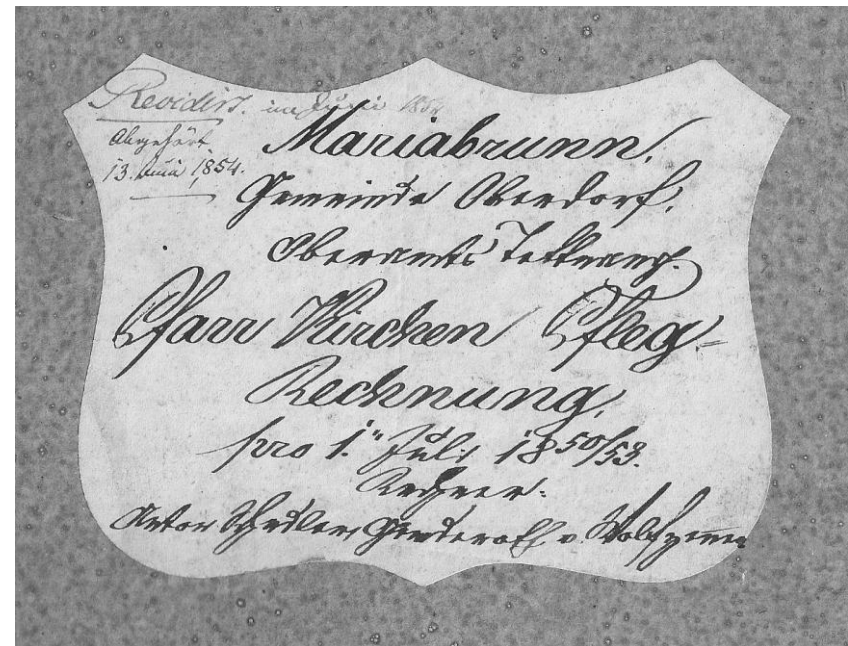 Revidirt. im Juni 1854
Abgehört.
13. Juni 1854.
Mariabrunn,
Gemeinde Oberdorf,
Oberamts Tettnang.
Pfarr Kirchen Pfleg-
Rechnung,
pro 1.ten Juli 1850/53.
Rechner:
Anton Schuler, Gemeinderath v.